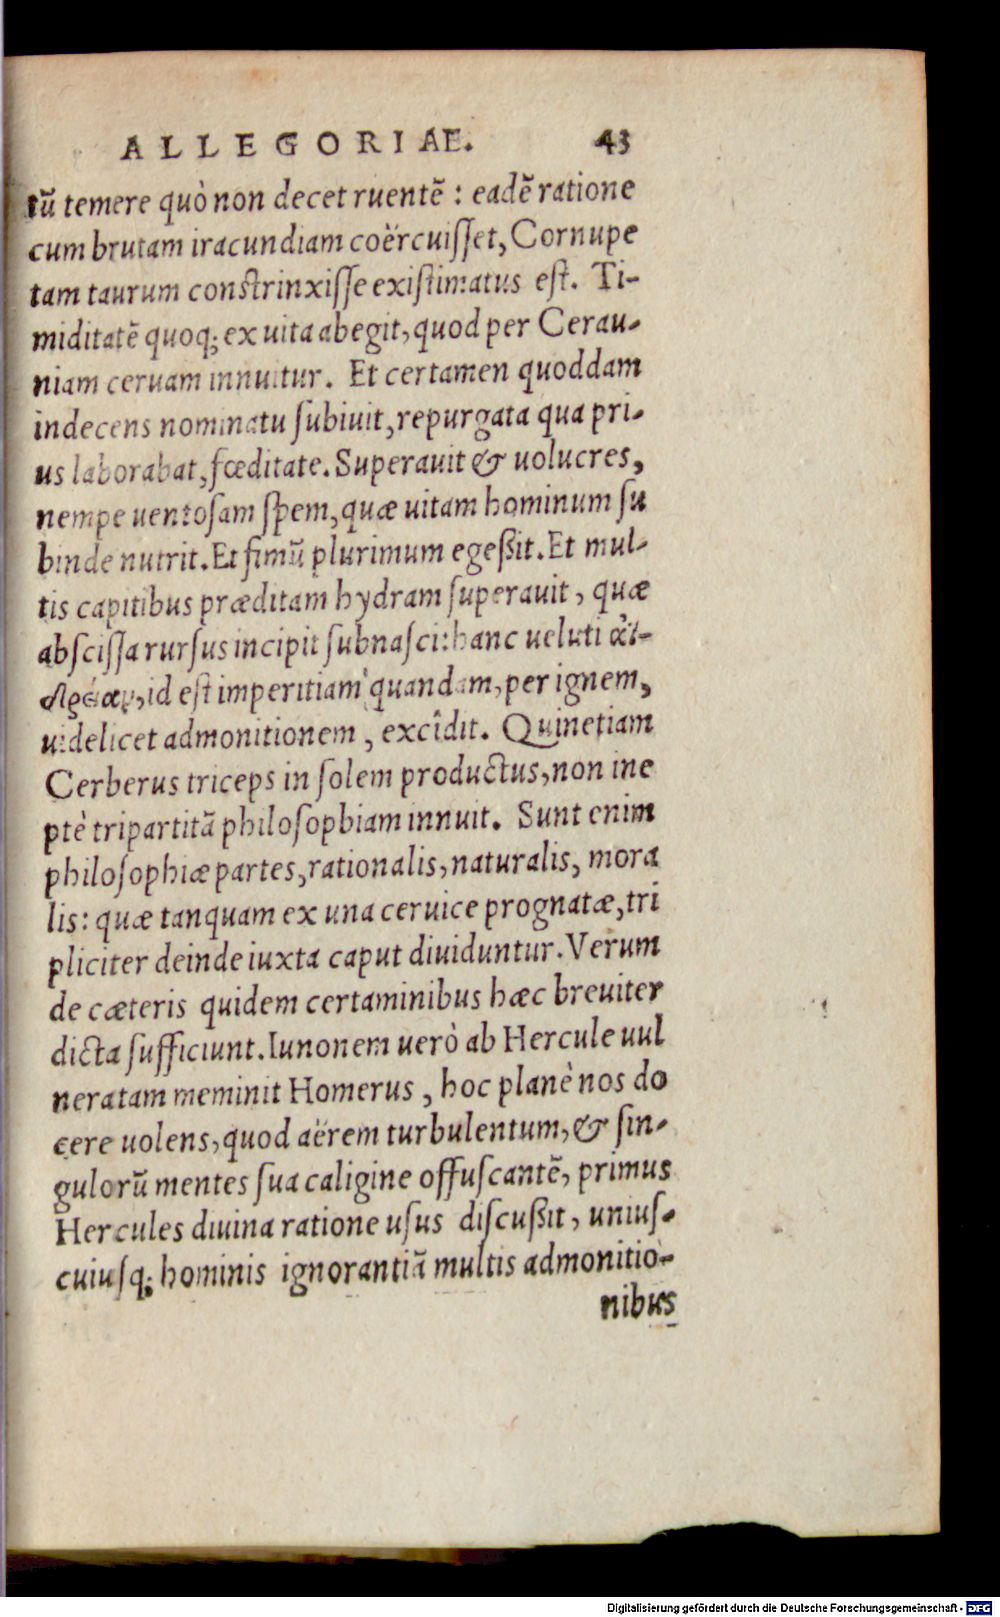 ALLEGORIAE. 43
tũ temere quò non decet ruentẽ : eadẽ ratione
cum brutam iracundiam coërcuisset, Cornupe
tam taurum constrinxisse existimatus est. Ti-
miditatẽ quoq; ex uita abegit, quod per Cerau-
niam ceruam innuitur. Et certamen quoddam
indecens nominatu subiuit, repurgata qua pri-
us laborabat, fœditate. Superauit & uolucres,
nempe uentosam spem, quæ uitam hominum su
binde nutrit. Et fimũ plurimum egeßit. Et mul-
tis capitibus præditam hydram superauit, quæ
abscissa rursus incipit subnasci: hanc ueluti
id est imperitiam quandam, per ignem,
uidelicet admonitionem, excîdit. Quinetiam
Cerberus triceps in solem productus, non ine
ptè tripartitã philosophiam innuit. Sunt enim
philosophiæ partes, rationalis, naturalis, mora
lis: quæ tanquam ex una ceruice prognatæ, tri
pliciter deinde iuxta caput diuiduntur. Verum
de cæteris quidem certaminibus hæc breuiter
dicta sufficiunt. Iunonem uerò ab Hercule uul
neratam meminit Homerus, hoc planè nos do
cere uolens, quod aërem turbulentum, & sin-
gulorũ mentes sua caligine offuscantẽ, primus
Hercules diuina ratione usus discußit, unius-
cuiusq; hominis ignorantiã multis admonitio-
nibus
Digitalisierung gefördert durch die Deutsche Forschungsgemeinschaft - DFG